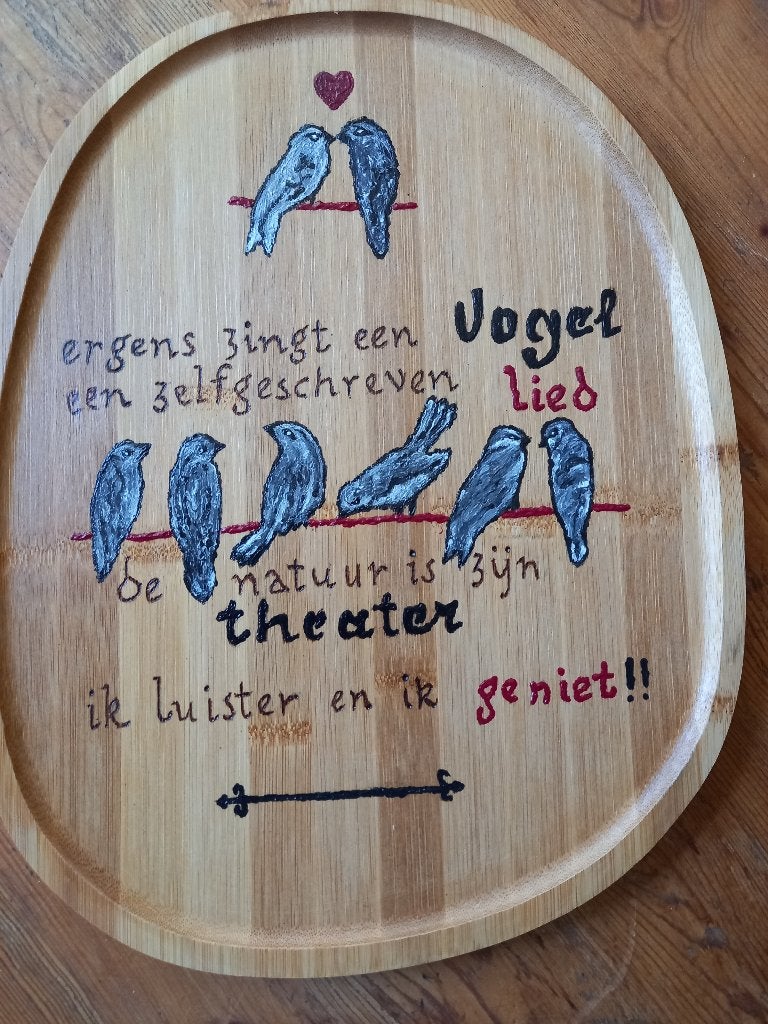 ergens zingt een Vogel
een zelfgeschreven lied
de natuur is zijn
theater
ik luister en ik geniet!!